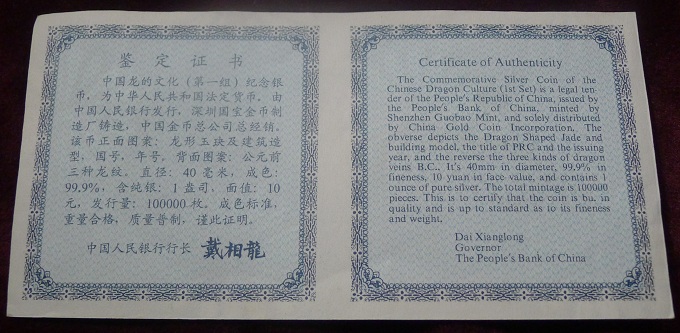 鉴定证书
中国龙的文化（第一组）纪念银
币，为中华人民共和国法定货币，由
中国人民银行发行，深圳国宝金币制
造厂铸造，中国金币总公司总经销。
该币正面图案：龙形玉玦及建筑造
型，国号，年号。背面图案：公元前
三种龙纹。直径：40毫米，成色：
99.9%，含纯银：1盎司，面值：10
元，发行量：100000枚。成色标准，
重量合格，质量普制，谨此证明。
中国人民银行行长 戴相龍
Certificate of Authenticity
The Commemorative Silver Coin of the
Chinese Dragon Culture (1st Set) is a legal ten-
der of the People's Republic of China, issued by
the People's Bank of China, minted by
Shenzhen Guobao Mint, and solely distributed
by China Gold Coin Incorporation. The
obverse depicts the Dragon Shaped Jade and
building model, the title of PRC and the issuing
year, and the reverse the three kinds of dragon
veins B.C.. It's 40mm in diameter, 99.9% in
fineness, 10 yuan in face value, and contains 1
ounce of pure silver. The total mintage is 100000
pieces. This is to certify that the coin is bu. in
quality and is up to standard as to its fineness
and weight.
Dai Xianglong
Governor
The People's Bank of China